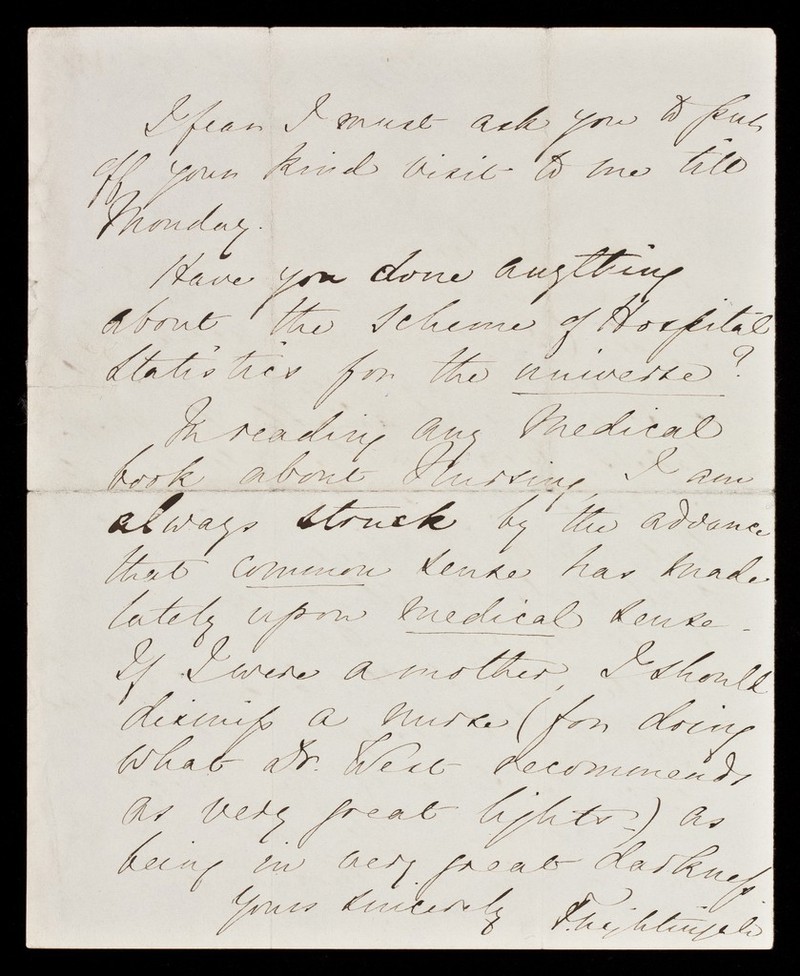 I fear I must ask you to put
off your kind visit to me till
Monday.
Have you done anything
about the scheme of Hospital
Statistics for the universe?
In reading any Medical
book about Nursing, I am
always struck by the advance
that common sense has made
lately upon medical sense -
If I were a mother, I should
dismiss a nurse (for doing
what Dr. West recommends
as very great lights -) as
being in very great darkness
Yours sincerely F. Nightingale